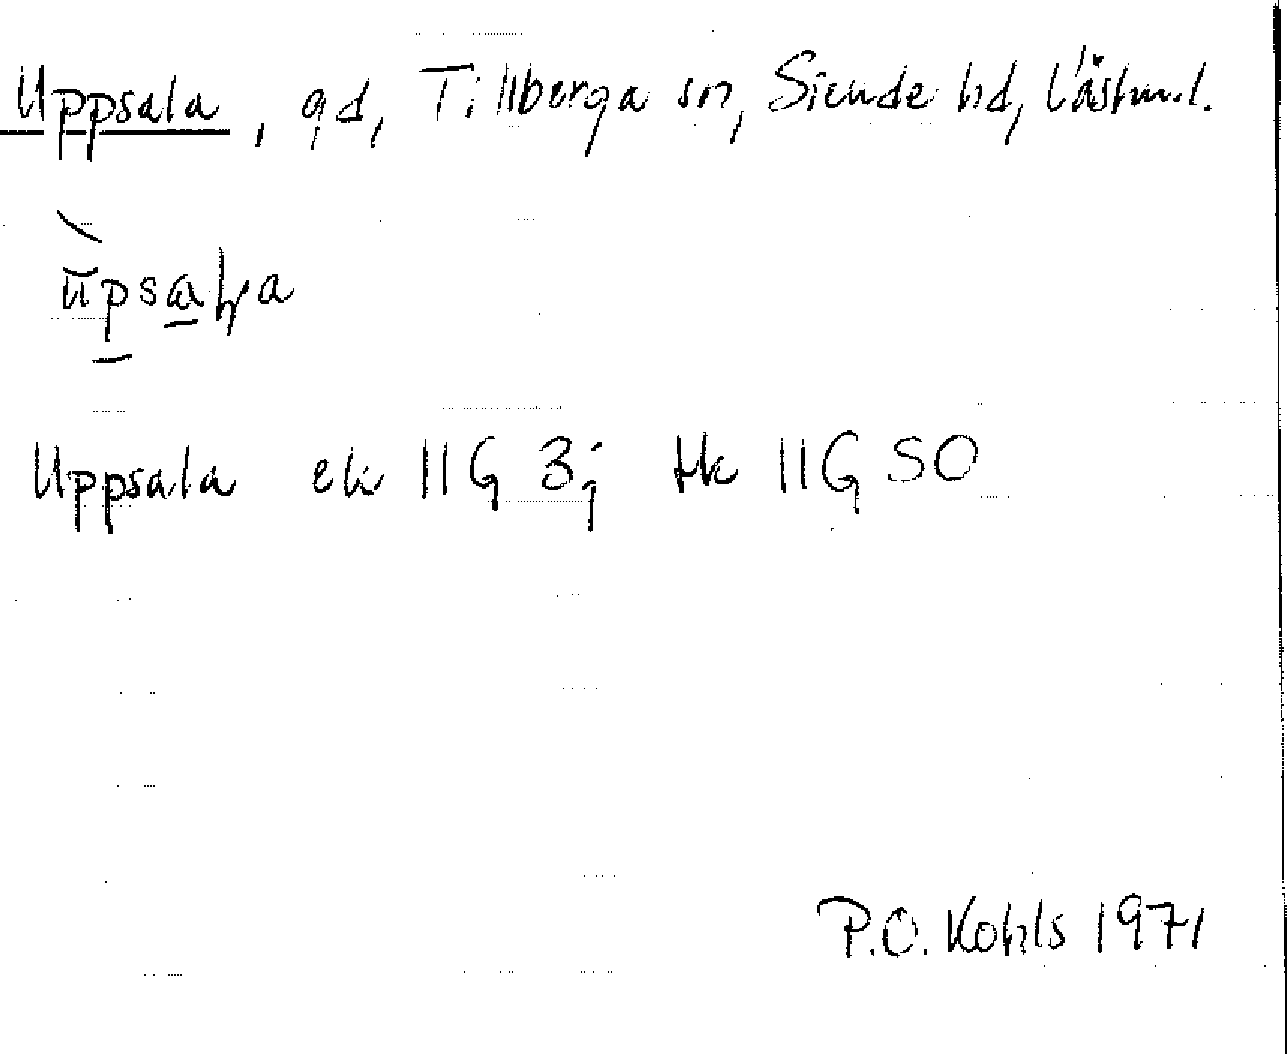 Uppsala, gd, Tillberga sn, Siende hd, Västml.
Uppsala ek 11G 3j tk 11G SO
P.O. Kohls 1971